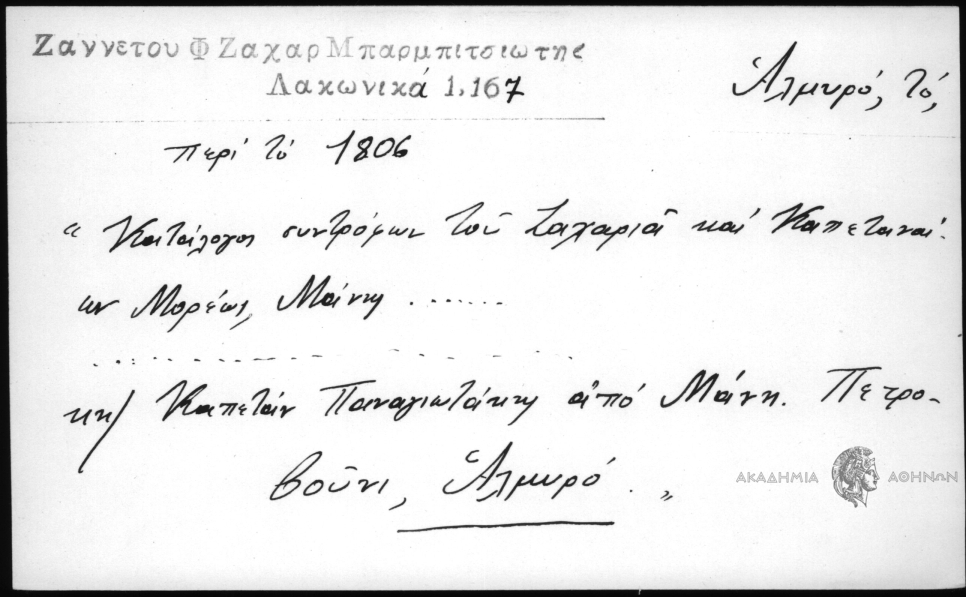 Ζαννετου Φ Ζαχαρ Μπαρμπιτσιωτης
Λακωνικά 1.167
Ἁλμυρό, τό,
περί τό 1806
“ Κατάλογος συντρόφων τοῦ Ζαχαριᾶ καί Καπεταναί-
ων Μορέως, Μάνης .......
κη/ Καπετάν Παναγιωτάκης ἀπό Μάνη. Πετρο-
βοῦνι, Ἁλμυρό . „
ΑΚΑΔΗΜΙΑ ΑΘΗΝΩΝ